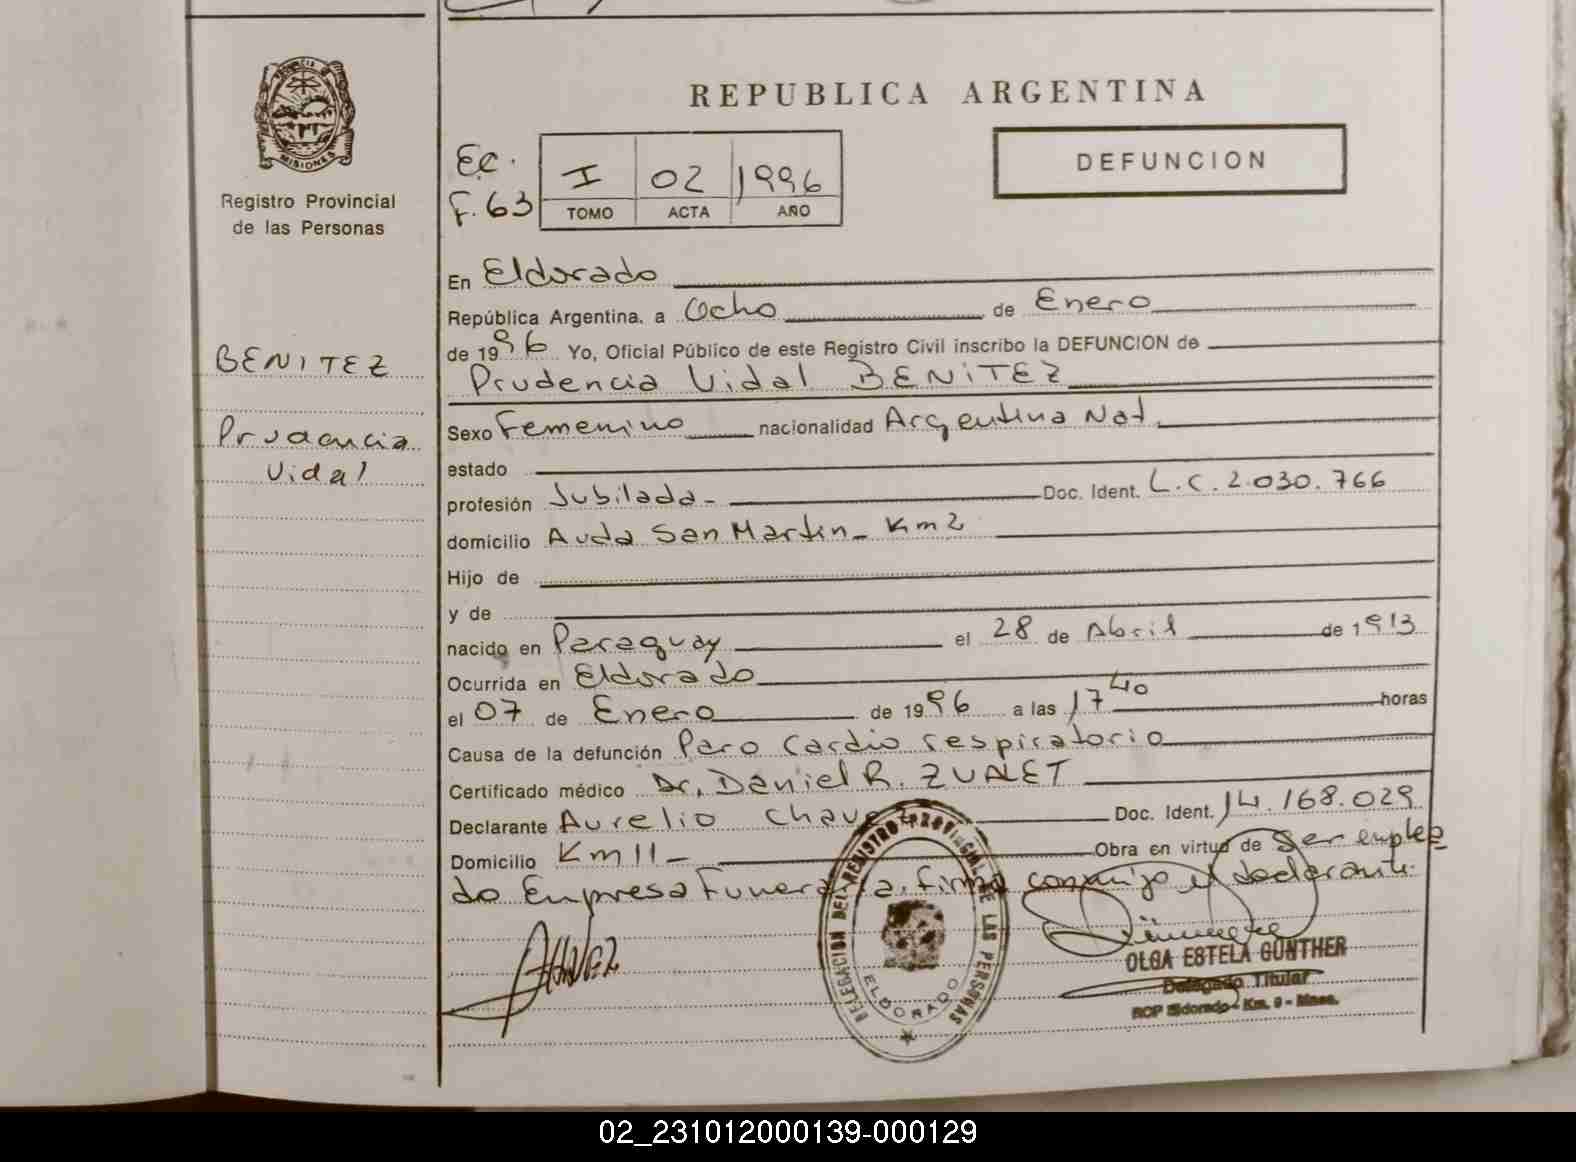 PROVINCIA DE MISIONES
Registro Provincial
de las Personas
BENITEZ
Prudencia
Vidal
REPUBLICA ARGENTINA
DEFUNCION
E.C.
F.63
I 02 1996
TOMO ACTA AÑO
En Eldorado
República Argentina, a Ocho de Enero
de 1996 Yo, Oficial Público de este Registro Civil inscribo la DEFUNCION de
Prudencia Vidal BENITEZ
Sexo Femenino nacionalidad Argentina Nat.
estado
profesión Jubilada- Doc. Ident. L.C. 2.030.766
domicilio Avda San Martin- Km 2
Hijo de
y de
nacido en Paraguay el 28 de Abril de 1913
Ocurrida en Eldorado
el 07 de Enero de 1996 a las 17 40 horas
Causa de la defunción Paro Cardio respiratorio
Certificado médico Dr. Daniel R. ZUALET
Declarante Aurelio Chavez Doc. Ident. 14.168.029
Domicilio Km 11- Obra en virtud de Ser emplea
do Empresa Funeraria. firma conmigo el declarante.
DELEGACION DEL REGISTRO PROVINCIAL DE LAS PERSONAS
ELDORADO
OLGA ESTELA GUNTHER
Delegado Titular
RCP Eldorado - Km. 9 - Mnes.
02_231012000139-000129